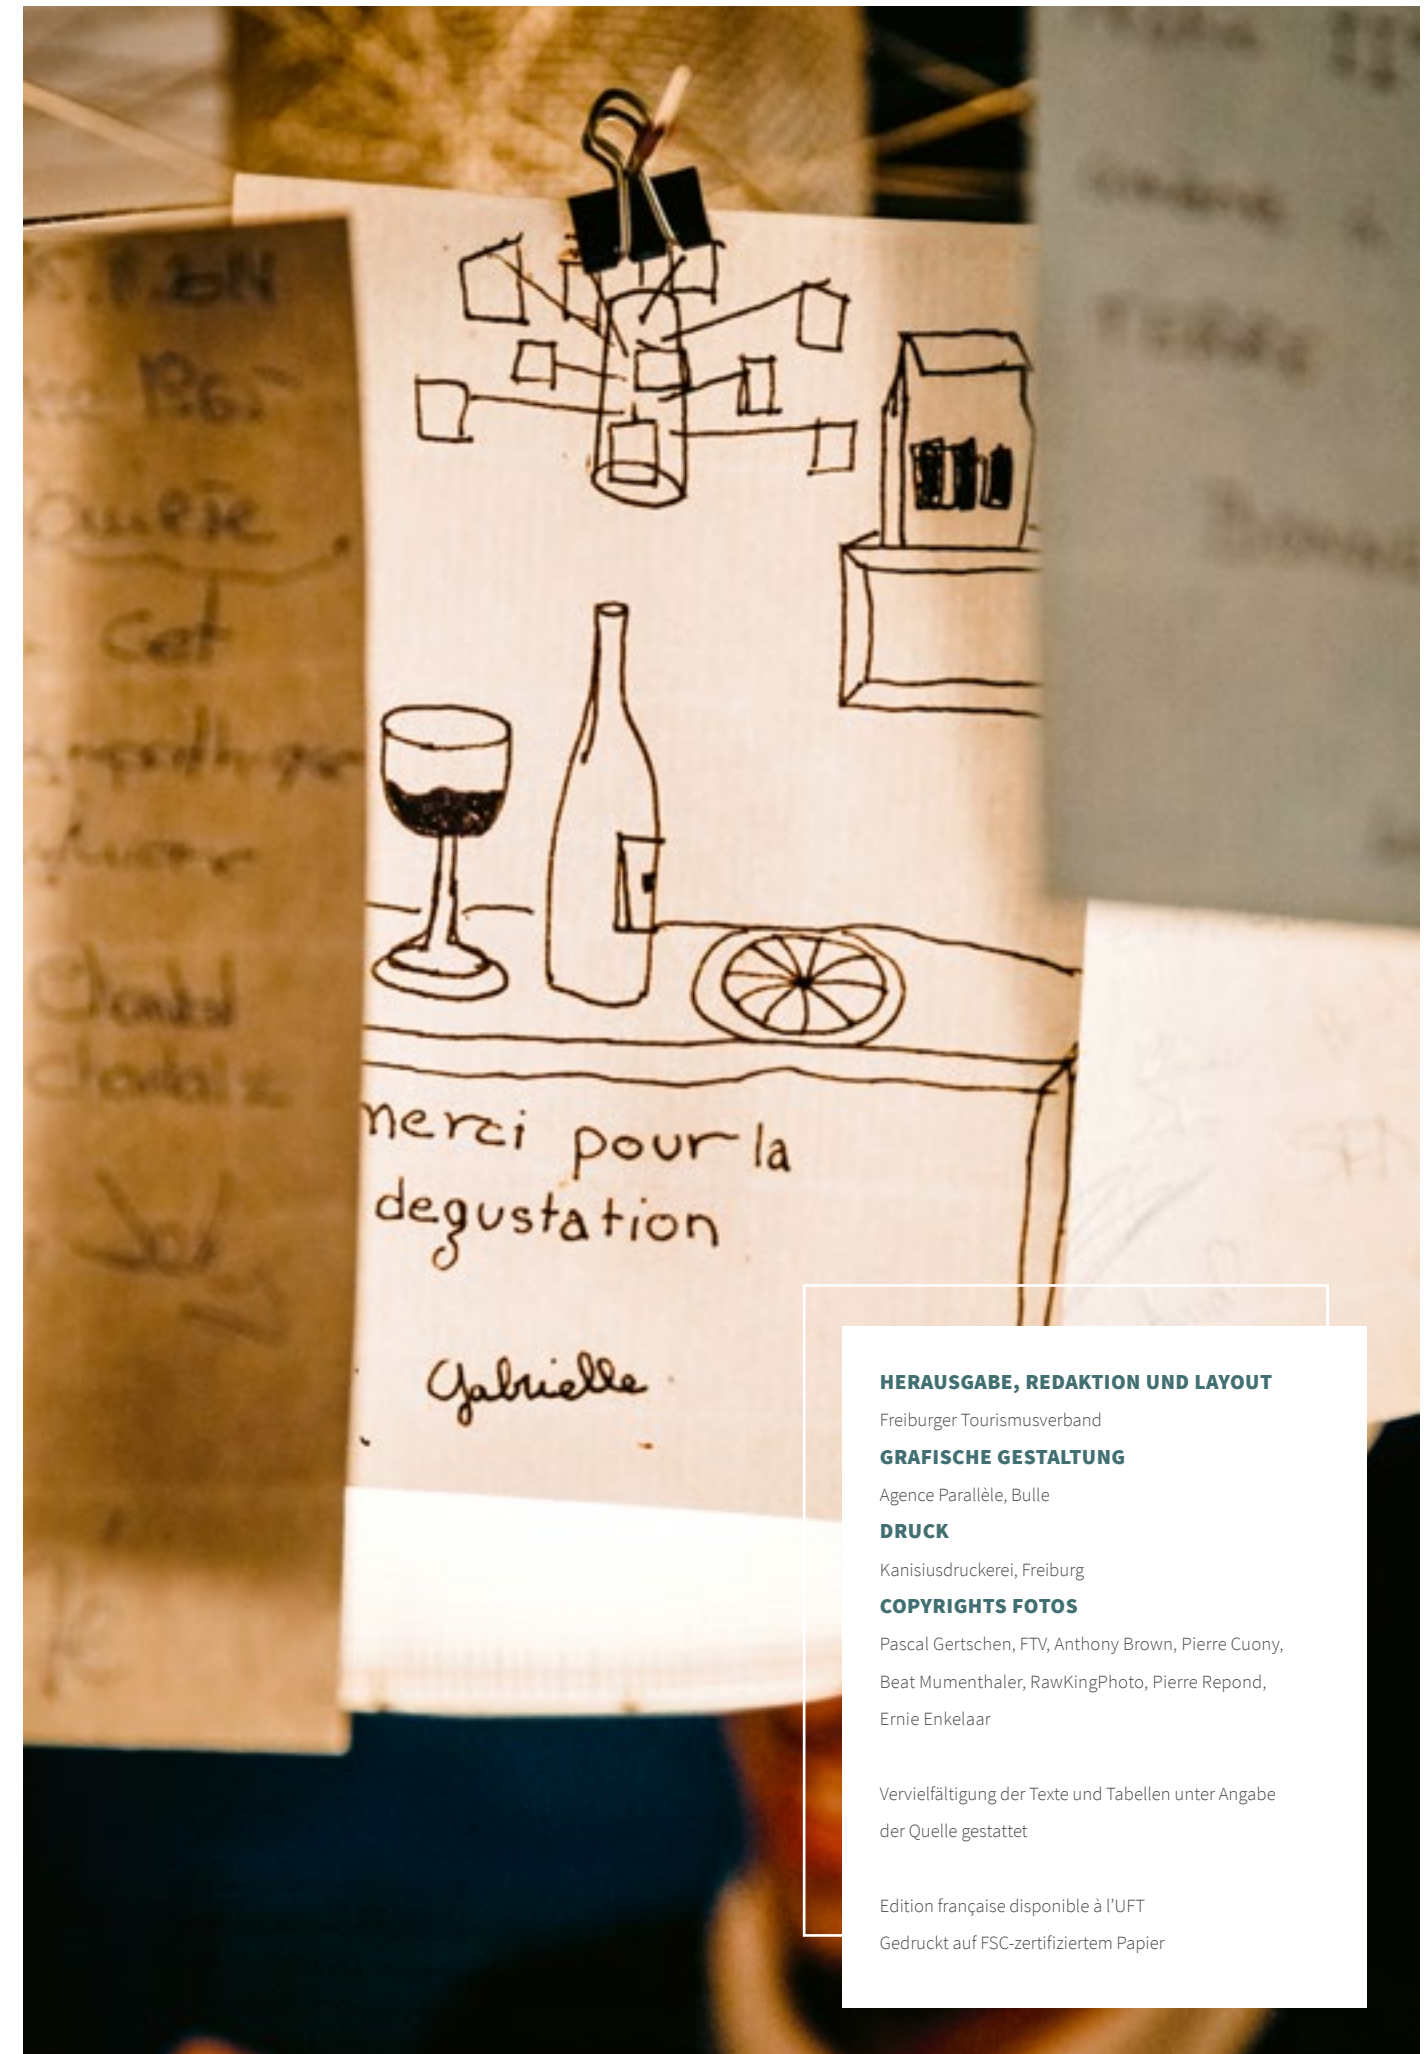 cet
merci pour la
degustation
Gabrielle
HERAUSGABE, REDAKTION UND LAYOUT
Freiburger Tourismusverband
GRAFISCHE GESTALTUNG
Agence Parallèle, Bulle
DRUCK
Kanisiusdruckerei, Freiburg
COPYRIGHTS FOTOS
Pascal Gertschen, FTV, Anthony Brown, Pierre Cuony,
Beat Mumenthaler, RawKingPhoto, Pierre Repond,
Ernie Enkelaar
Vervielfältigung der Texte und Tabellen unter Angabe
der Quelle gestattet
Edition française disponible à l’UFT
Gedruckt auf FSC-zertifiziertem Papier